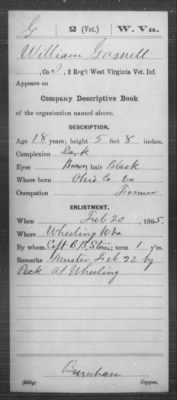 G 2 (Vet.) W. Va.
William Gosnell
, Co. I, 2 Reg't West Virginia Vet. Inf.
Appears on
Company Descriptive Book
of the organization named above.
DESCRIPTION.
Age 18 years; height 5 feet 8 inches.
Complexion Dark
Eyes Brown; hair Black
Where born Ohio Co Va
Occupation Farmer
ENLISTMENT.
When Feb 20, 1865.
Where Wheeling WVa
By whom Capt B.B. Stone; term 1 y'rs.
Remarks Muster Feb 22 by
Peck at Wheeling
Burnham
Copyist.